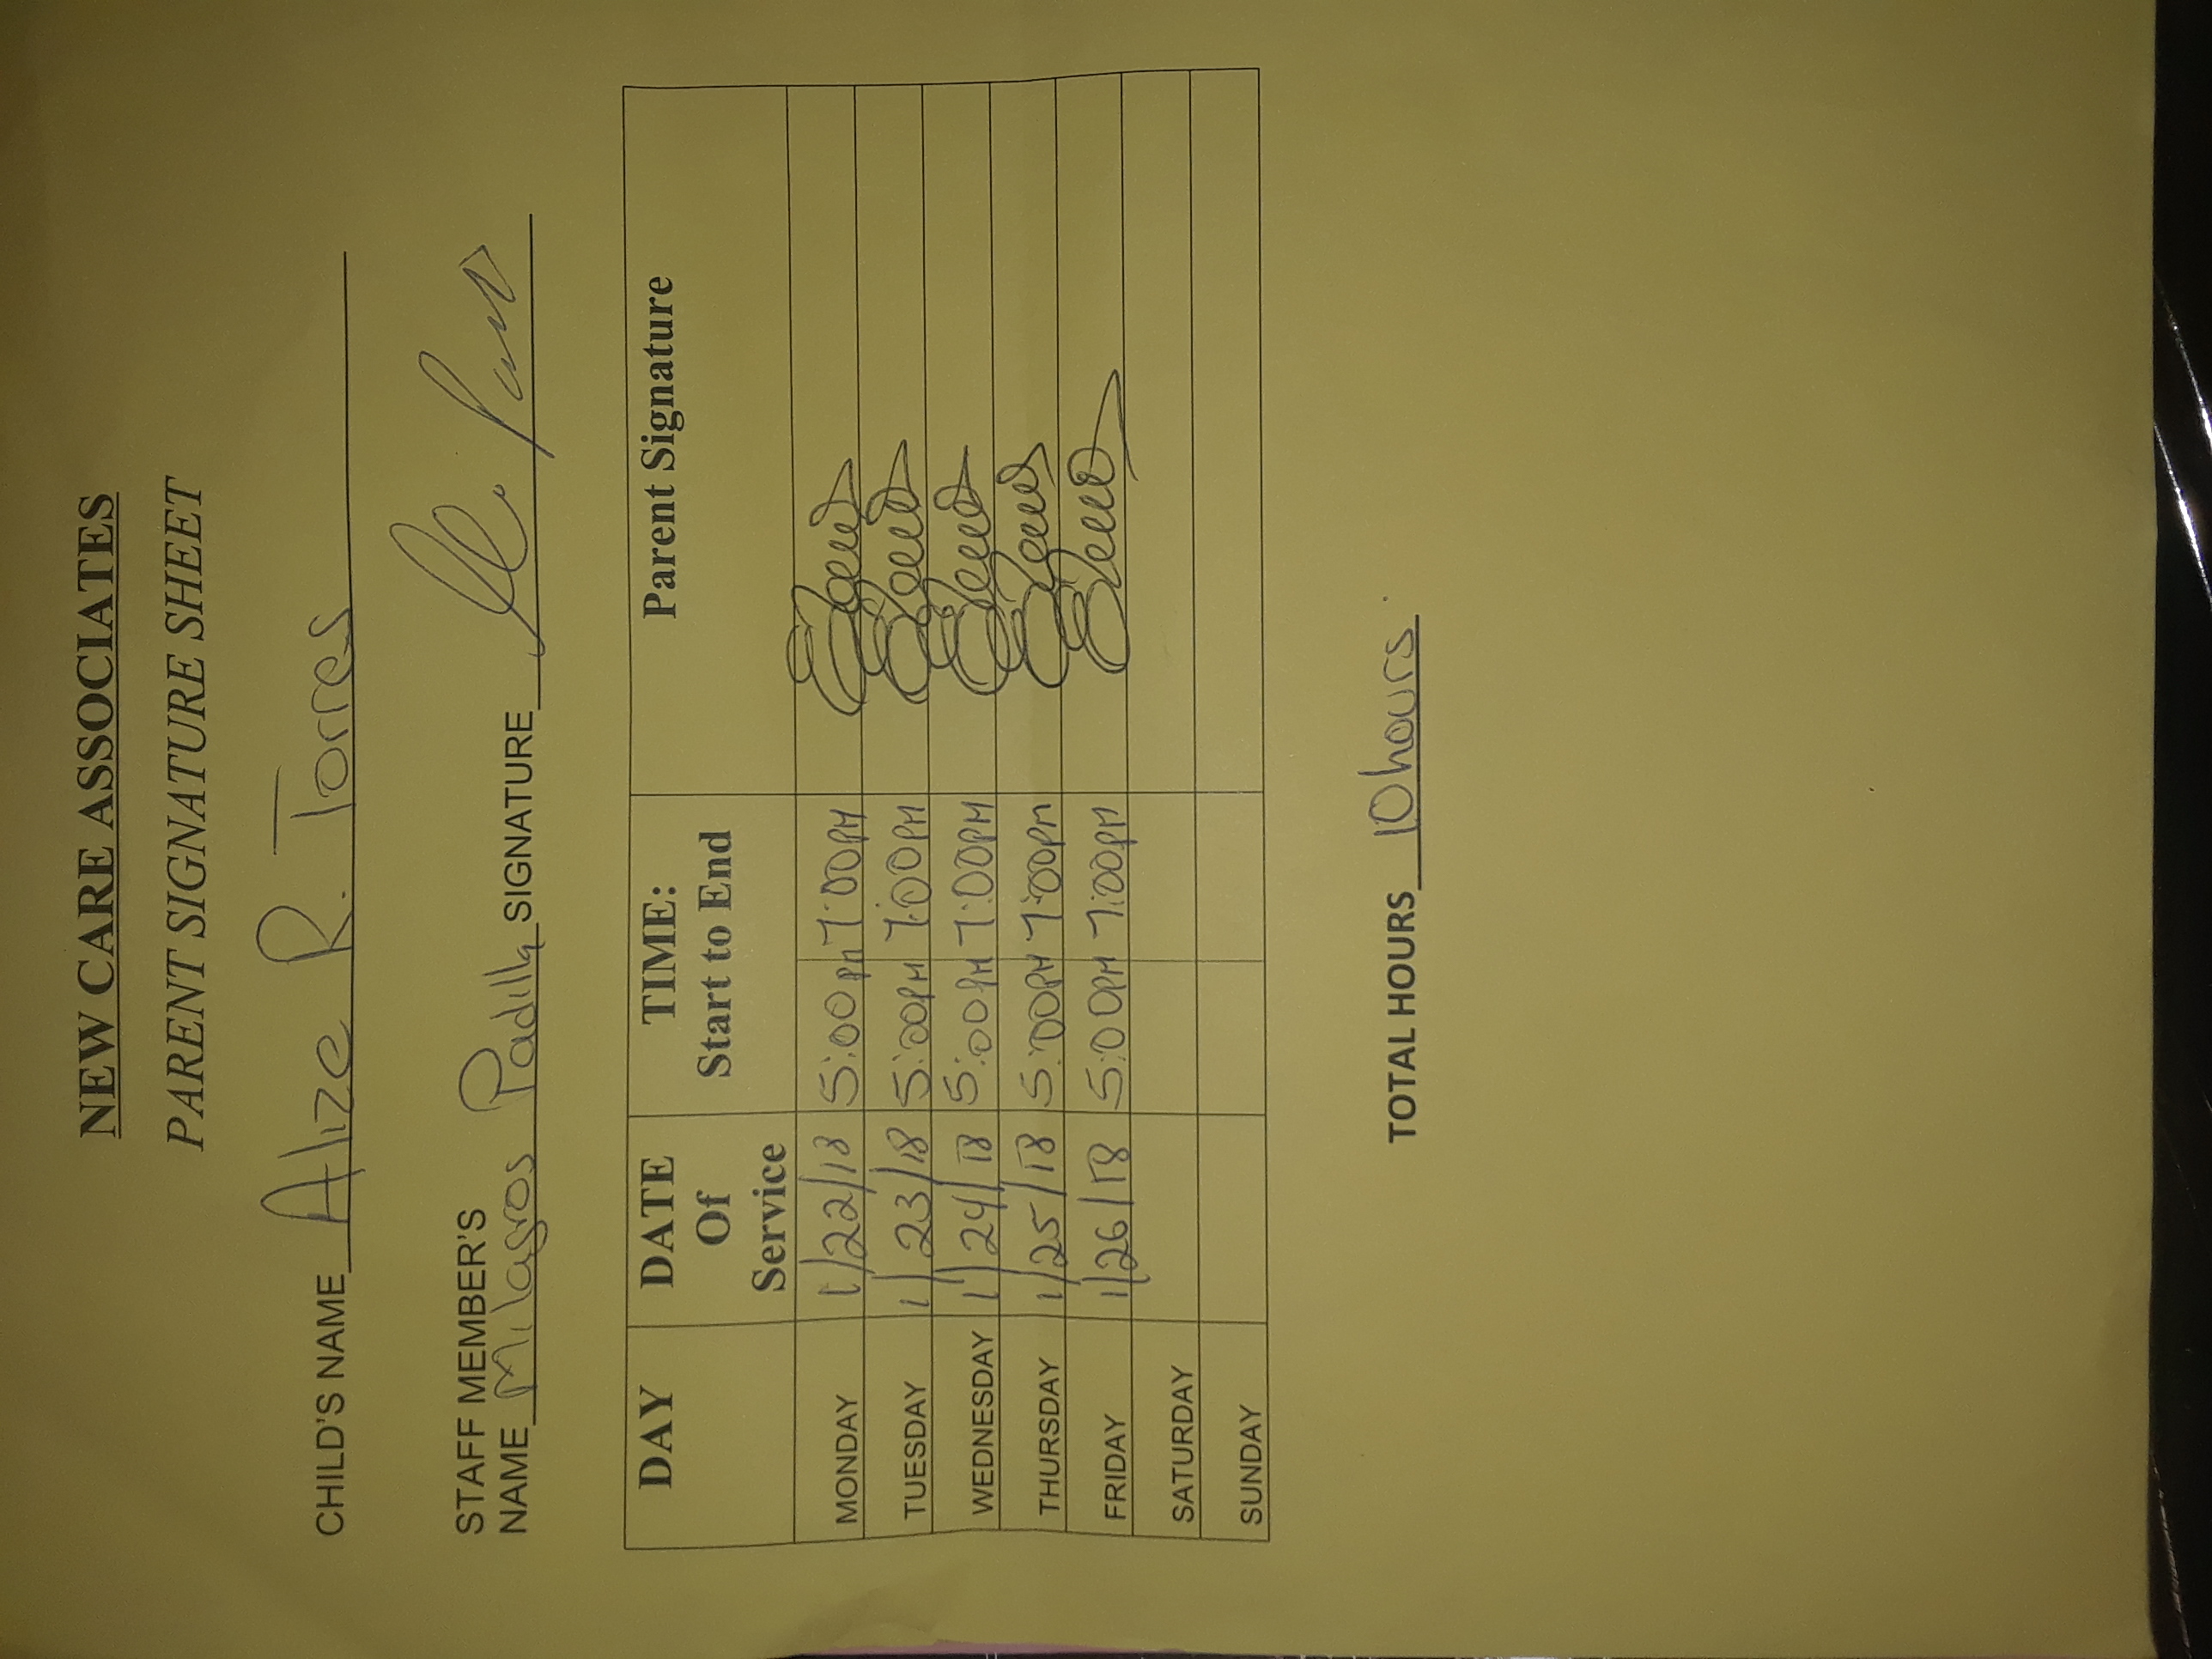 NEW CARE ASSOCIATES
PARENT SIGNATURE SHEET
CHILD'S NAME Alize R. Torres
STAFF MEMBER'S
NAME Milagros Padilla SIGNATURE
DAY DATE Of Service TIME: Start to End Parent Signature
MONDAY 1/22/18 5:00pm 7:00PM
TUESDAY 1/23/18 5:00PM 7:00PM
WEDNESDAY 1/24/18 5:00PM 7:00PM
THURSDAY 1/25/18 5:00PM 7:00pm
FRIDAY 1/26/18 5:00PM 7:00PM
SATURDAY
SUNDAY
TOTAL HOURS 10 hours